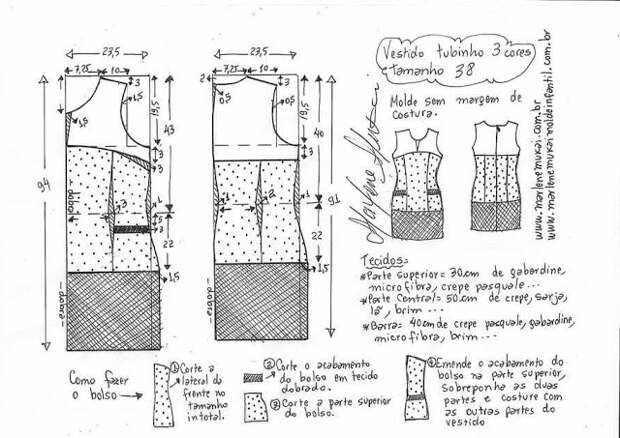 Vestido tubinho 3 cores
tamanho 38
Molde sem margem de
costura.
Marlene Mukai
www.marlenemukai.com.br
www.marlenemukaimoldeinfantil.com.br
23,5
7,25
10
3
1,5
19,5
43
94
3
3
dobra
3
1
5
22
1,5
dobra
23,5
7,25
10
2
0,5
3
0,5
19,5
40
3
91
1
2
1
22
1,5
dobra
Tecidos:
*Parte superior = 30cm de gabardine,
microfibra, crepe pasquale...
*Parte Central = 50cm de crepe, sarja,
lã, brim...
*Barra = 40cm de crepe pasquale, gabardine,
microfibra, brim...
Como fazer
o bolso
① Corte a
lateral do
frente no
tamanho
in total.
② Corte o acabamento
do bolso em tecido
dobrado.
③ Corte a parte superior
do bolso.
④ Emende o acabamento do
bolso na parte superior,
sobreponha as duas
partes e costure com
as outras partes do
vestido